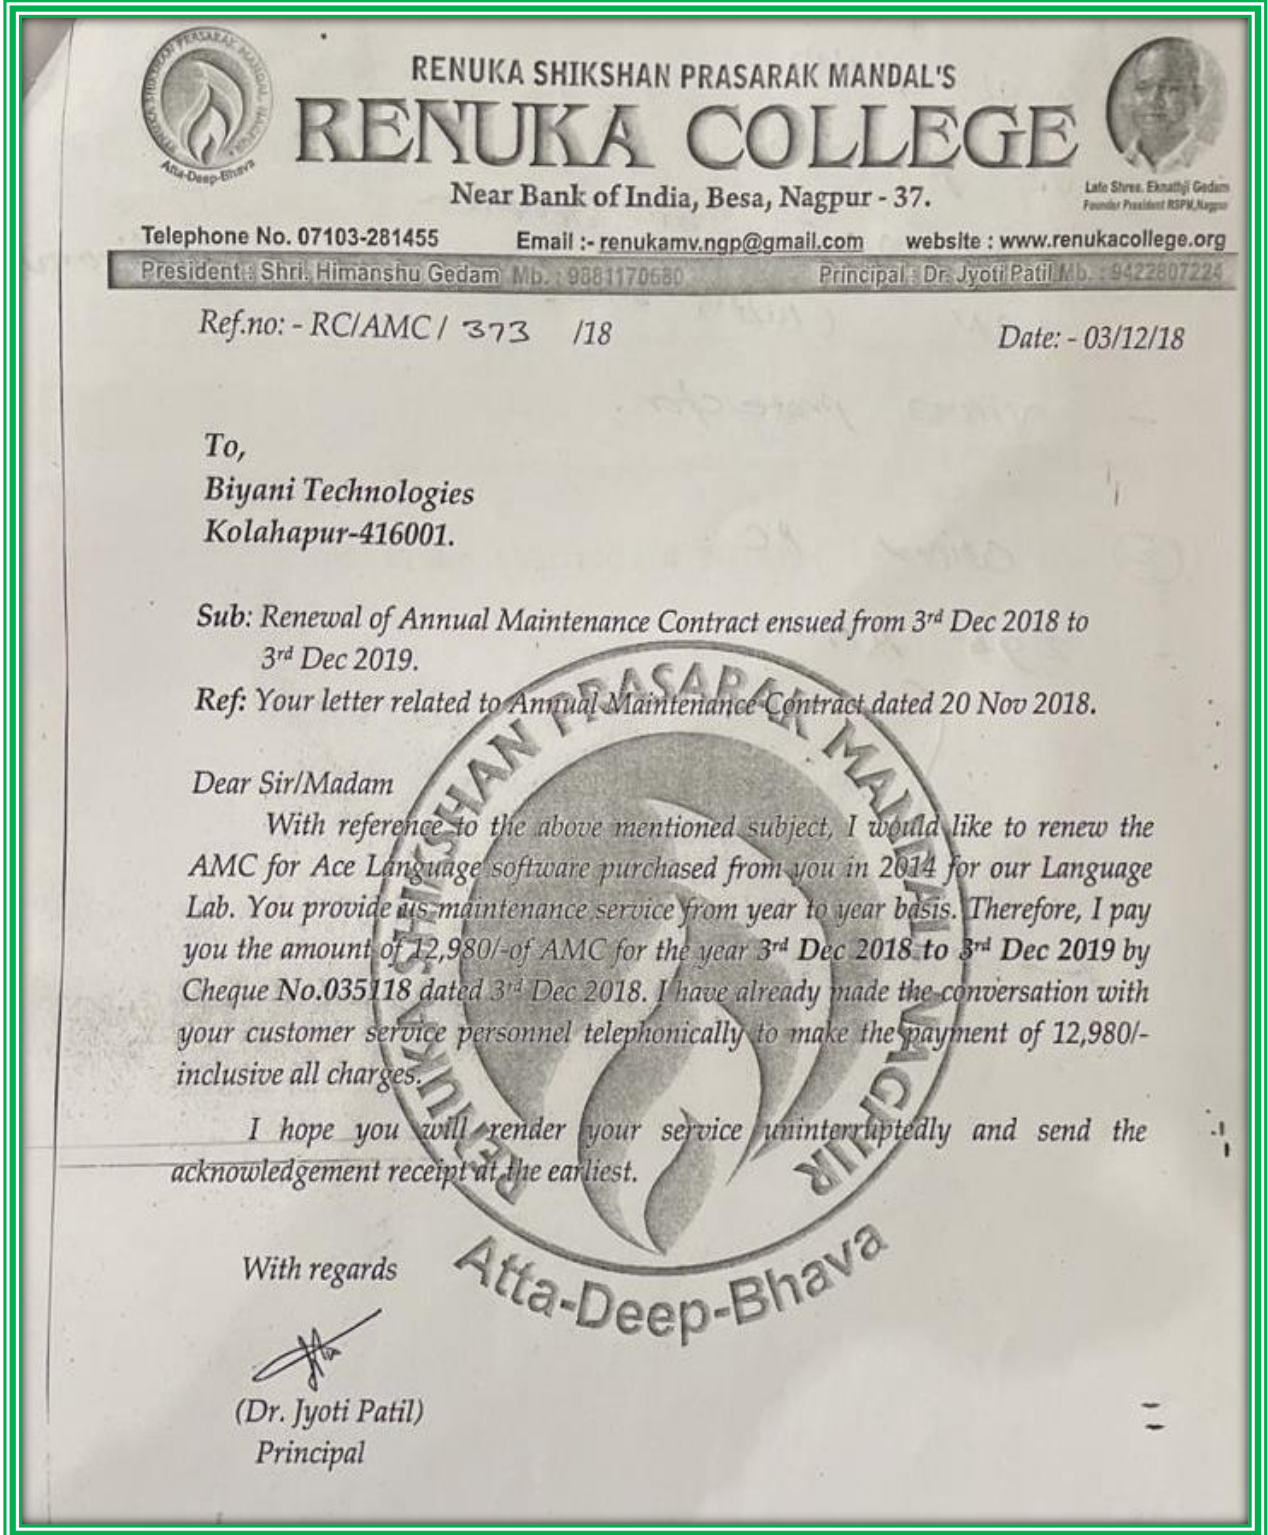 RENUKA SHIKSHAN PRASARAK MANDAL'S
RENUKA COLLEGE
Near Bank of India, Besa, Nagpur - 37.
RENUKA SHIKSHAN PRASARAK MANDAL NAGPUR
Atta-Deep-Bhava
Late Shree. Eknathji Gedam
Founder President RSPM,Nagpur
Telephone No. 07103-281455 Email :- renukamv.ngp@gmail.com website : www.renukacollege.org
President : Shri. Himanshu Gedam Mb. : 9881170680 Principal : Dr. Jyoti Patil Mb. : 9422807224
Ref.no: - RC/AMC / 373 /18
Date: - 03/12/18
To,
Biyani Technologies
Kolahapur-416001.
Sub: Renewal of Annual Maintenance Contract ensued from 3rd Dec 2018 to
3rd Dec 2019.
Ref: Your letter related to Annual Maintenance Contract dated 20 Nov 2018.
Dear Sir/Madam
With reference to the above mentioned subject, I would like to renew the
AMC for Ace Language software purchased from you in 2014 for our Language
Lab. You provide us maintenance service from year to year basis. Therefore, I pay
you the amount of 12,980/-of AMC for the year 3rd Dec 2018 to 3rd Dec 2019 by
Cheque No.035118 dated 3rd Dec 2018. I have already made the conversation with
your customer service personnel telephonically to make the payment of 12,980/-
inclusive all charges.
I hope you will render your service uninterruptedly and send the
acknowledgement receipt at the earliest.
RENUKA SHIKSHAN PRASARAK MANDAL NAGPUR
Atta-Deep-Bhava
With regards
(Dr. Jyoti Patil)
Principal